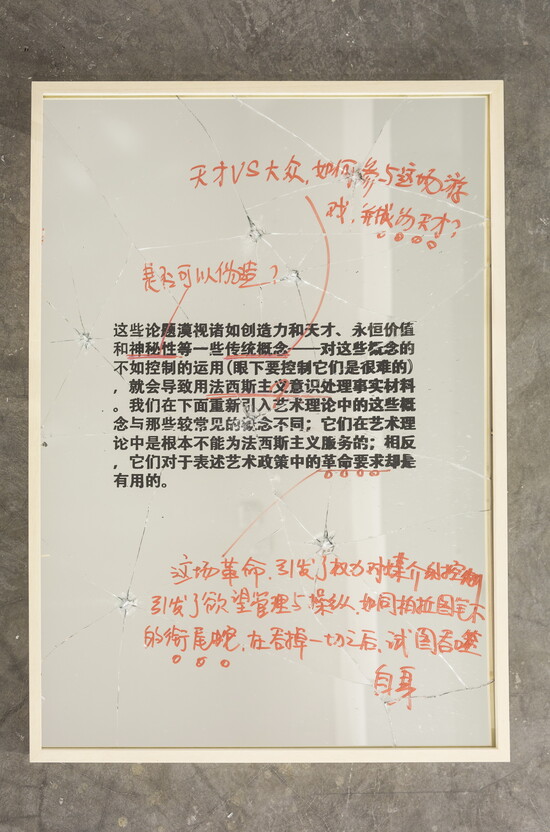 天才VS大众,如何参与这场游
戏,并成为天才?
是否可以伪造?
这些论题漠视诸如创造力和天才、永恒价值
和神秘性等一些传统概念——对这些概念的
不如控制的运用(眼下要控制它们是很难的)
，就会导致用法西斯主义意识处理事实材料
。我们在下面重新引入艺术理论中的这些概
念与那些较常见的概念不同；它们在艺术理
论中是根本不能为法西斯主义服务的；相反
，它们对于表述艺术政策中的革命要求却是
有用的。
这场革命,引发了权力对媒介的控制
引发了欲望管理与操纵,如同柏拉图笔下
的衔尾蛇,在吞掉一切之后,试图吞噬
自身